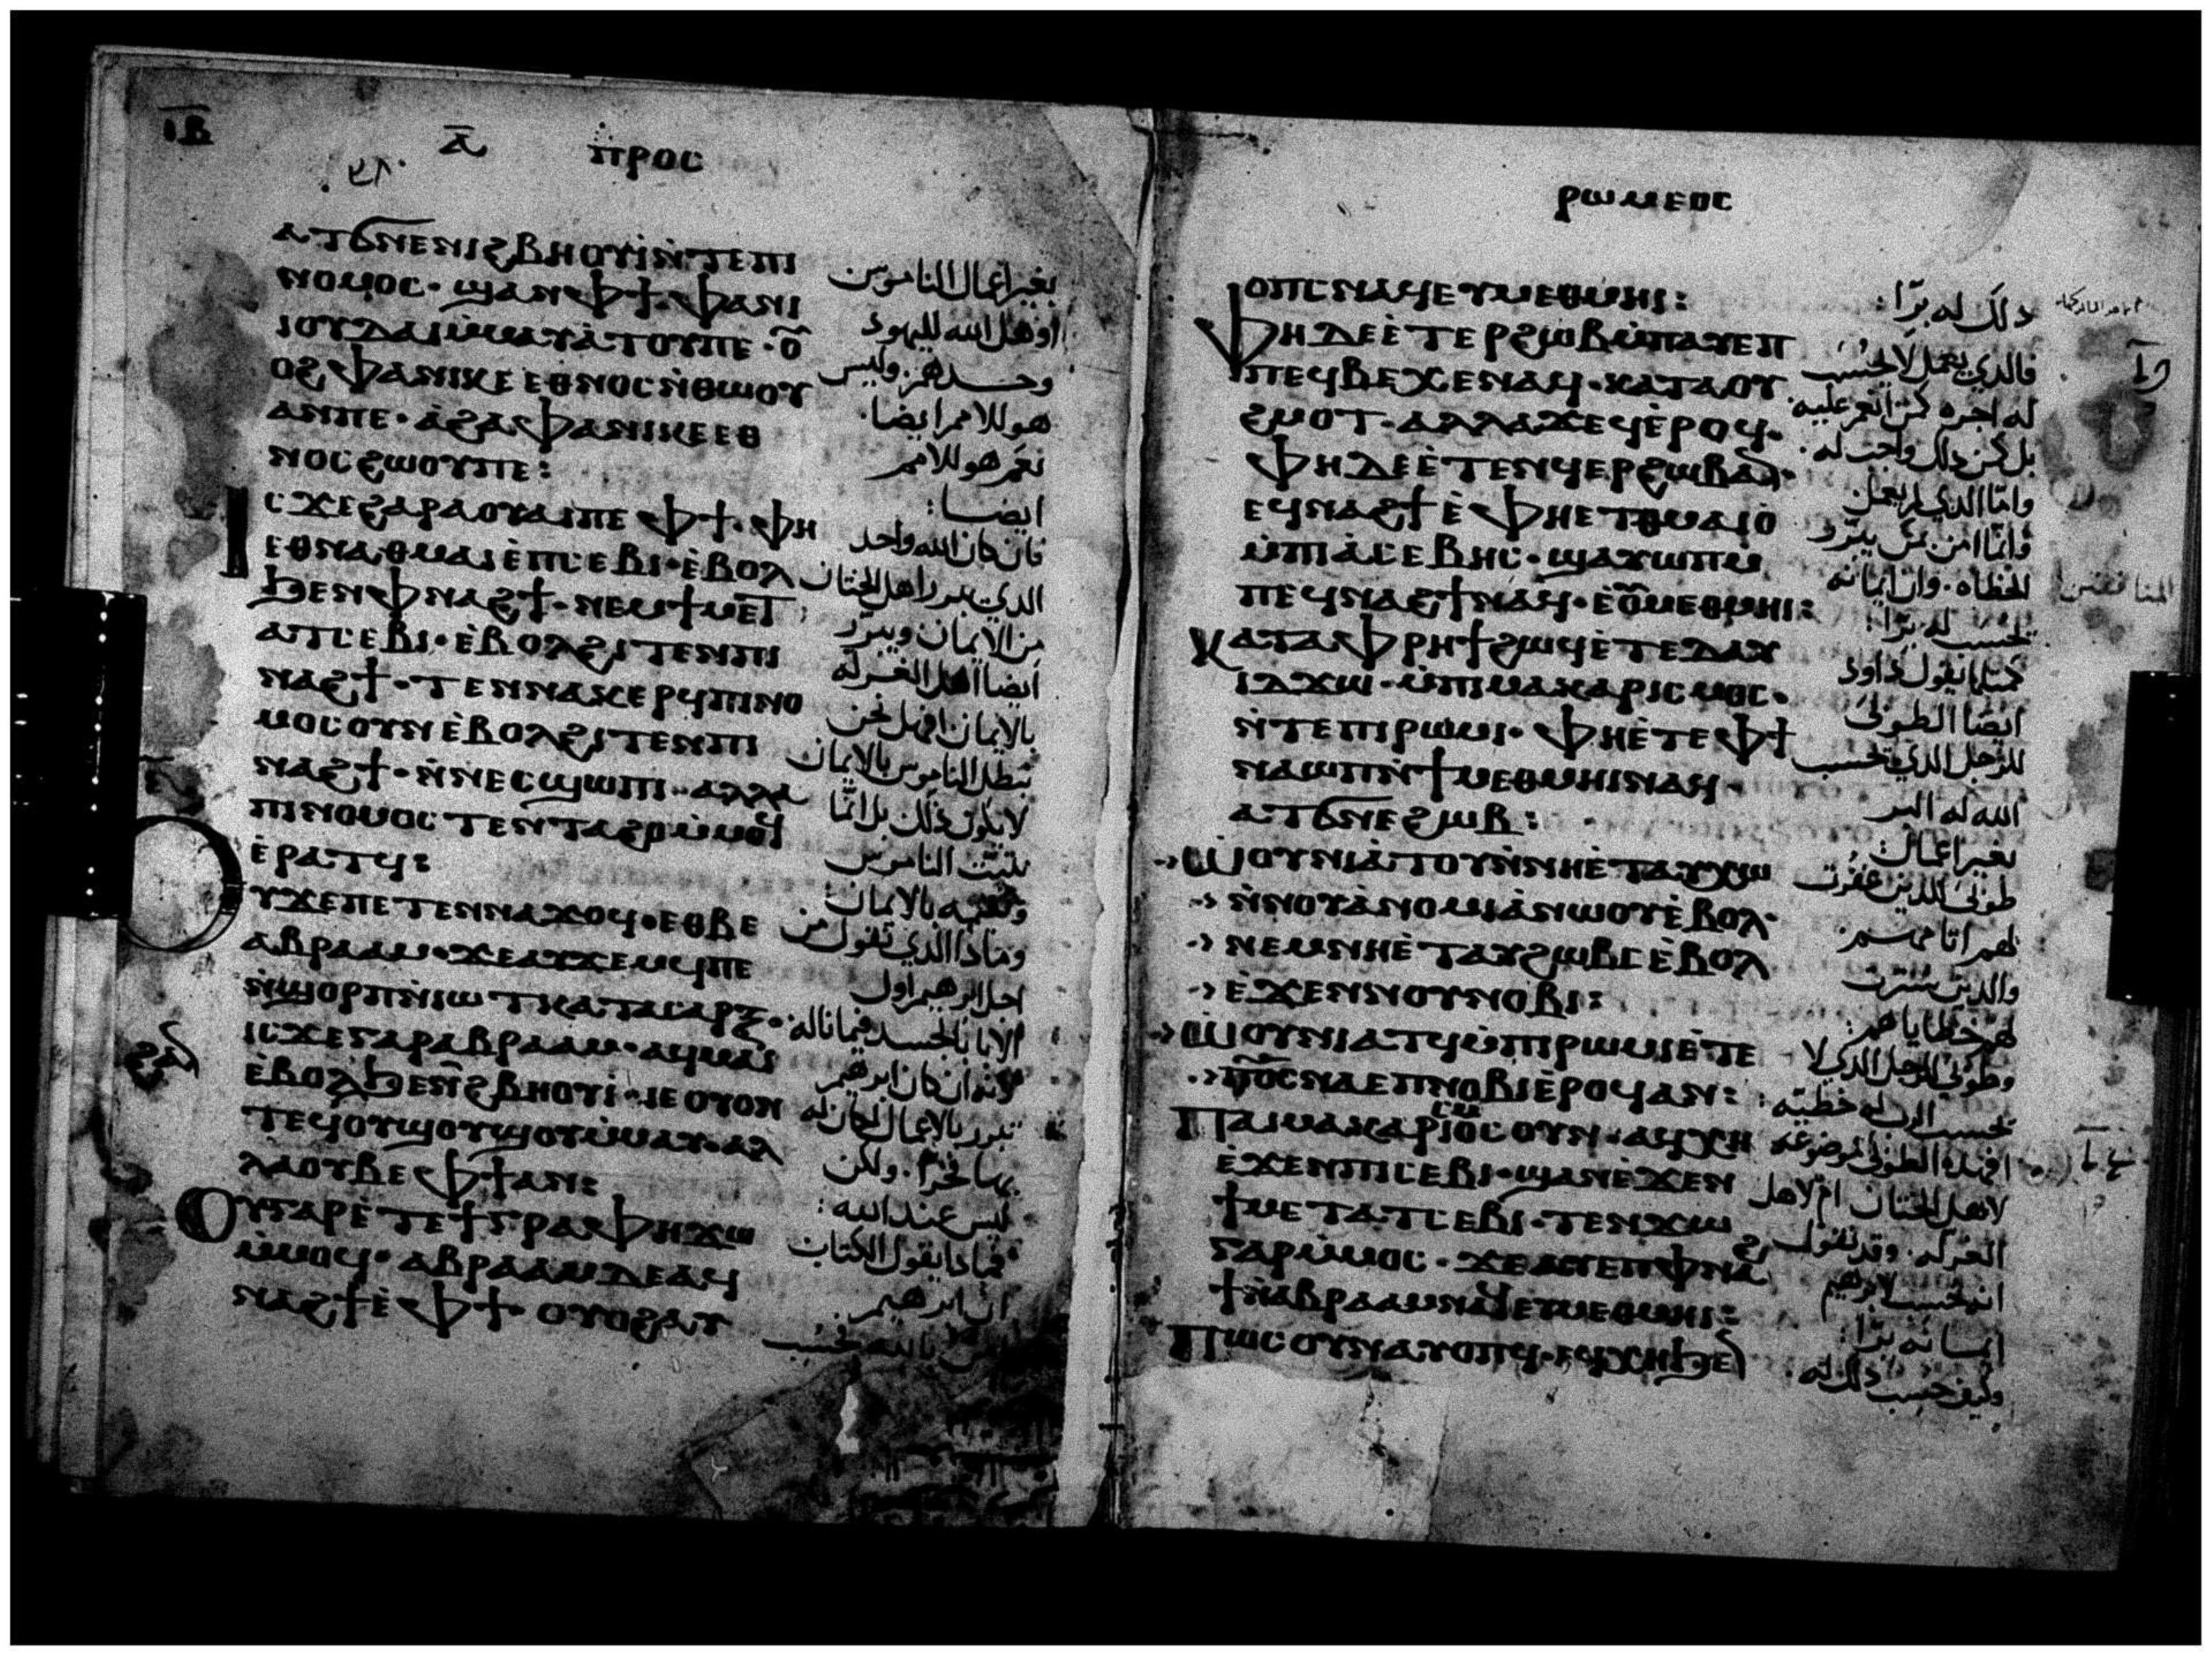 ⲓⲃ
ⲁ̅ ⲡⲣⲟⲥ
ⲁⲧϭⲛⲉⲛⲓϩⲃⲏⲟⲩⲓ̀ⲛ̀ⲧⲉⲡⲓ
ⲛⲟⲙⲟⲥ· ϣⲁⲛⲫϯ· ⲫⲁⲛⲓ
ⲓⲟⲩⲇⲁⲓⲙ̀ⲙⲁⲩⲁ̀ⲧⲟⲩⲡⲉ· ⲟ̅
ⲟϩⲫⲁⲛⲓⲕⲉⲉⲑⲛⲟⲥⲛ̀ⲑⲱⲟⲩ
ⲁⲛⲡⲉ· ⲁ̀ϩⲁⲫⲁⲛⲓⲕⲉⲉⲑ
ⲛⲟⲥϩⲱⲟⲩⲡⲉ:
ⲓⲥϫⲉⲅⲁⲣⲁⲟⲩⲁⲓⲡⲉ ⲫϯ· ⲫⲏ
ⲉⲑⲛⲁⲑⲙⲁⲓⲉ̀ⲡⲥⲉⲃⲓ· ⲉ̀ⲃⲟⲗ
ϧⲉⲛⲫⲛⲁϩϯ· ⲛⲉⲙϯⲙⲉⲧ
ⲁⲧⲥⲉⲃⲓ· ⲉ̀ⲃⲟⲗϩⲓⲧⲉⲛⲡⲓ
ⲛⲁϩϯ· ⲧⲉⲛⲛⲁⲕⲉⲣϥⲡⲓⲛⲟ
ⲙⲟⲥⲟⲩⲛⲉ̀ⲃⲟⲗϩⲓⲧⲉⲛⲡⲓ
ⲛⲁϩϯ· ⲛ̀ⲛⲉⲥϣⲱⲡⲓ· ⲁⲗⲗⲁ
ⲡⲓⲛⲟⲙⲟⲥ ⲧⲉⲛⲧⲁϩⲟⲙ̀ⲙⲟϥ
ⲉ̀ⲣⲁⲧϥ:
ⲟⲩϫⲉⲡⲉⲧⲉⲛⲛⲁϫⲟϥ· ⲉⲑⲃⲉ
ⲁⲃⲣⲁⲁⲙ· ϫⲉⲁⲩϫⲉⲙϥⲡⲉ
ⲛ̀ϣⲟⲣⲡⲛ̀ⲓⲱⲧⲕⲁⲧⲁⲥⲁⲣⲝ·
ⲓⲥϫⲉⲅⲁⲣⲁⲃⲣⲁⲁⲙ· ⲁϥⲙⲁⲓ
ⲉ̀ⲃⲟⲗϧⲉⲛⲛ̅ϩⲃⲏⲟⲩⲓ· ⲓⲉⲟⲩⲟⲛ
ⲧⲉϥⲟⲩϣⲟⲩϣⲟⲩⲙ̀ⲙⲁⲩ· ⲁⲗ
ⲗⲁⲟⲩⲃⲉⲫϯⲁⲛ:
ⲟⲩⲅⲁⲣⲉ̀ⲧⲉϯⲅⲣⲁⲫⲏϫⲱ
ⲙ̀ⲙⲟϥ· ⲁⲃⲣⲁⲁⲙⲇⲉⲁϥ
ⲛⲁϩϯⲉ̀ⲫϯ· ⲟⲩⲟϩⲁⲩ
بغير اعمال الناموس
او هل الله لليهود
وحدهم· وليس
هو للامم ايضا·
نعم هو للامم
ايضا:
فان كان الله واحد
الذي يبرر اهل الختان
من الايمان ويبرر
ايضا اهل الغرله
بالايمان افهل نحن
نبطل الناموس بالايمان
لا يكون ذلك بل انما
نثبت الناموس
بالايمان:
وماذا الذي نقول من
اجل ابرهيم اول
الابا بالجسد فيما ناله:
لانه ان كان ابرهيم
تبرر بالاعمال لكان له
بها فخرا· ولكن
ليس عند الله:
فماذا يقول الكتاب
ان ابرهيم
بالله فحسب
ⲣⲱⲙⲉⲟⲥ
ⲟⲡⲥⲛⲁϥⲉⲩⲙⲉⲑⲙⲏⲓ:
ⲫⲏⲇⲉⲉ̀ⲧⲉⲣϩⲱⲃⲙ̀ⲡⲁⲩⲉⲡ
ⲡⲉϥⲃⲉⲭⲉⲛⲁϥ· ⲕⲁⲧⲁⲟⲩ
ϩⲙⲟⲧ· ⲁⲗⲗⲁϫⲉϥⲉ̀ⲣⲟϥ·
ⲫⲏⲇⲉⲉ̀ⲧⲉⲛϥⲉⲣϩⲱⲃⲁⲛ·
ⲉϥⲛⲁϩϯⲉ̀ⲫⲏⲉⲧⲑⲙⲁⲓⲟ̀
ⲙ̀ⲡⲓⲁ̀ⲥⲉⲃⲏⲥ· ϣⲁⲩⲱⲡⲙ̀
ⲡⲉϥⲛⲁϩϯⲛⲁϥ· ⲉⲟ̅ⲙⲉⲑⲙⲏⲓ:
ⲕⲁⲧⲁⲫⲣⲏϯϩⲱϥⲉ̀ⲧⲉⲇⲁⲩ
ⲓⲇϫⲱ· ⲙ̀ⲡⲓⲙⲁⲕⲁⲣⲓⲥⲙⲟⲥ·
ⲛ̀ⲧⲉⲡⲓⲣⲱⲙⲓ· ⲫⲏⲉ̀ⲧⲉⲫϯ
ⲛⲁⲱⲡⲛ̀ϯⲙⲉⲑⲙⲏⲓⲛⲁϥ·
ⲁⲧϭⲛⲉϩⲱⲃ:
ⲱⲟⲩⲛⲓⲁ̀ⲧⲟⲩⲛ̀ⲛⲏⲉ̀ⲧⲁⲩⲭⲱ
ⲛ̀ⲛⲟⲩⲁ̀ⲛⲟⲙⲓⲁ̀ⲛⲱⲟⲩⲉ̀ⲃⲟⲗ·
ⲛⲉⲙⲛⲏⲉ̀ⲧⲁⲩϩⲱⲃⲥⲉ̀ⲃⲟⲗ
ⲉ̀ϫⲉⲛⲛⲟⲩⲛⲟⲃⲓ:
ⲱⲟⲩⲛⲓⲁⲧϥⲙ̀ⲡⲓⲣⲱⲙⲓⲉ̀ⲧⲉ
ⲡ̅ⲟ̅ⲥ̅ⲛⲁⲉⲡⲛⲟⲃⲓⲉ̀ⲣⲟϥⲁⲛ:
ⲡⲁⲓⲙⲁⲕⲁⲣⲓⲥⲙⲟⲥⲟⲩⲛ· ⲁϥⲭⲏ
ⲉ̀ϫⲉⲛⲡⲓⲥⲉⲃⲓ· ϣⲁⲛⲉ̀ϫⲉⲛ
ϯⲙⲉⲧⲁⲧⲥⲉⲃⲓ· ⲧⲉⲛϫⲱ
ⲅⲁⲣⲙ̀ⲙⲟⲥ· ϫⲉⲁⲩⲉⲡⲫⲛⲁϩ
ϯⲛ̀ⲁⲃⲣⲁⲁⲙⲛⲁϥⲉⲩⲙⲉⲑⲙⲏⲓ:
ⲡⲱⲥⲟⲩⲛⲁⲩⲟⲡϥ· ⲉϥⲭⲏϧⲉⲛ
ذلك له برا:
فالذي يعمل لا تحسب
له اجره كمن انعم عليه·
بل كمن ذلك واجب له:
واما الذي لم يعمل
وانما امن بمن يبرر
الخطاه· وان ايمانه
تحسب له برا:
كمثلما يقول داود
ايضا الطوبى
للرجل الذي تحسب
الله له البر
بغير اعمال:
طوبى للذين غفرت
لهم اثامهم·
والذين سترت
لهم خطاياهم:
وطوبى للرجل الذي لا
تحسب الرب له خطيته:
افهذه الطوبى موضوعه
لاهل الختان ام لاهل
الغرله· وقد نقول
انه تحسب لابرهيم
ايمانه برا:
وكيف حسب ذلك له·